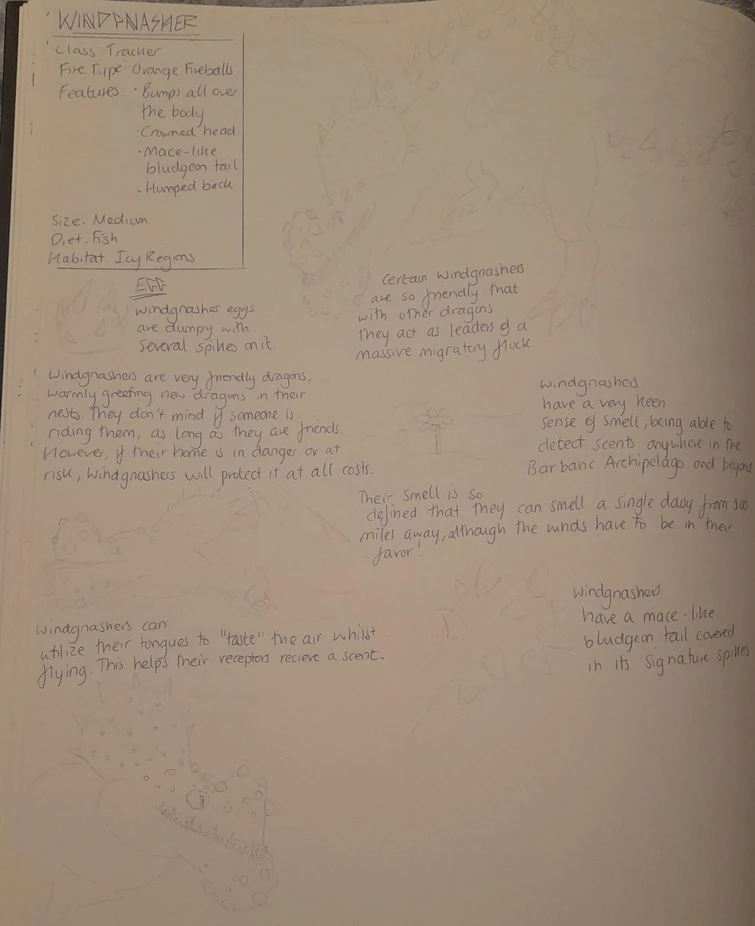 WINDGNASHER
Class: Tracker
Fire Type: Orange Fireballs
Features: • Bumps all over
the body
• Crowned head
• Mace-like
bludgeon tail
• Humped back
Size: Medium
Diet: Fish
Habitat: Icy Regions
EGG
Windgnasher eggs
are dumpy with
several spikes on it
Certain Windgnashers
are so friendly that
with other dragons
they act as leaders of a
massive migratory flock
Windgnashers are very friendly dragons,
warmly greeting new dragons in their
nests. They don't mind if someone is
riding them, as long as they are friends.
However, if their home is in danger or at
risk, Windgnashers will protect it at all costs.
Windgnashers
have a very keen
sense of smell, being able to
detect scents anywhere in the
Barbaric Archipelago and beyond
Their smell is so
defined that they can smell a single daisy from 100
miles away, although the winds have to be in their
favor!
Windgnashers can
utilize their tongues to "taste" the air whilst
flying. This helps their receptors recieve a scent.
Windgnashers
have a mace-like
bludgeon tail covered
in its signature spikes